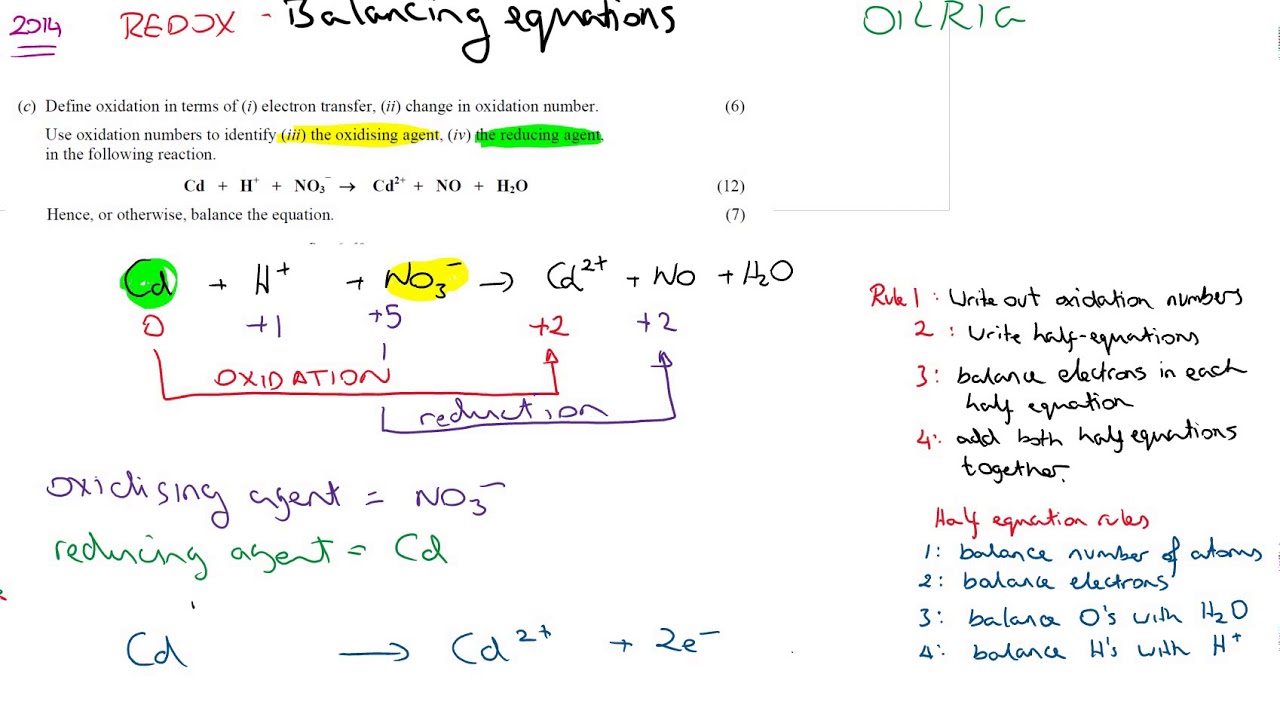 2014 REDOX - Balancing equations OILRIG
(c) Define oxidation in terms of (i) electron transfer, (ii) change in oxidation number. (6)
Use oxidation numbers to identify (iii) the oxidising agent, (iv) the reducing agent,
in the following reaction.
Cd + H⁺ + NO₃⁻ → Cd²⁺ + NO + H₂O (12)
Hence, or otherwise, balance the equation. (7)
Cd + H⁺ + NO₃⁻ → Cd²⁺ + NO + H₂O
0 +1 +5 +2 +2
OXIDATION
reduction
oxidising agent = NO₃⁻
reducing agent = Cd
Cd → Cd²⁺ + 2e⁻
Rule 1 : Write out oxidation numbers
2 : Write half-equations
3: balance electrons in each
half equation
4: add both half equations
together.
Half equation rules
1: balance number of atoms
2: balance electrons
3: balance O's with H₂O
4: balance H's with H⁺